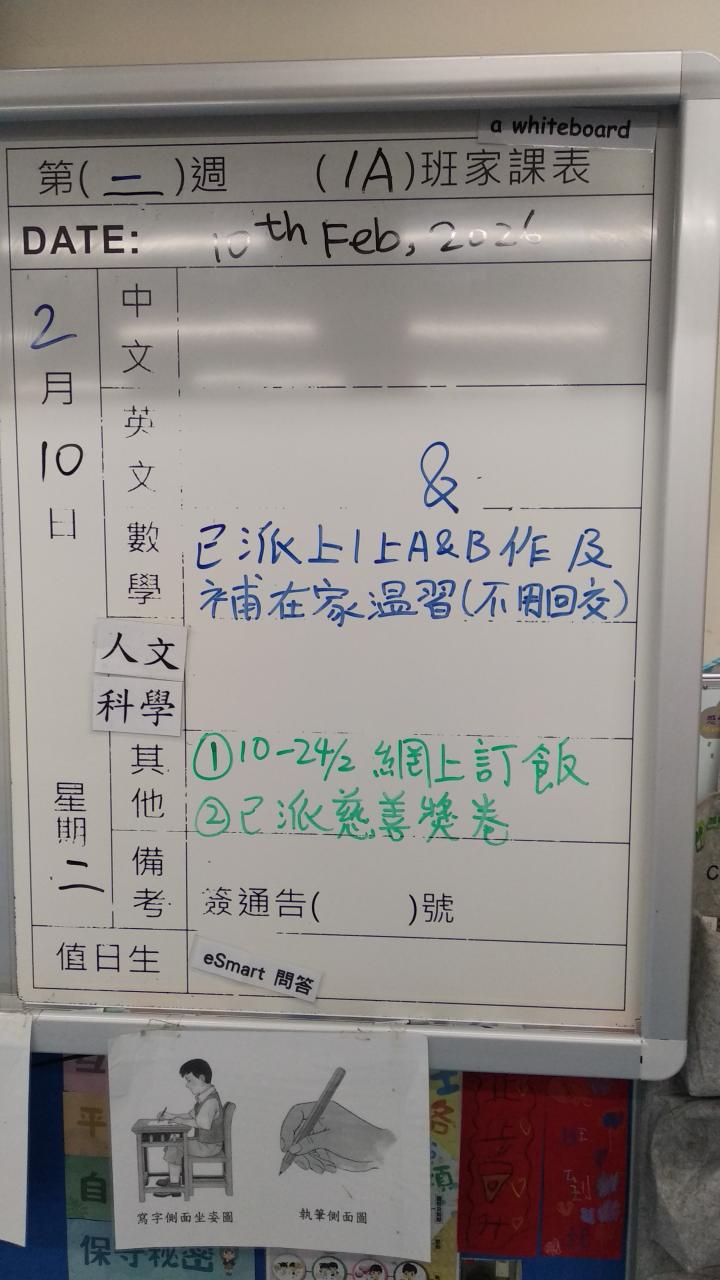 a whiteboard
第(二)週 (1A)班家課表
DATE: 10th Feb, 2026
2月10日
星期二
中文
英文
&
數學
已派上1上A&B作及
補在家溫習(不用回交)
人文
科學
其他
①10-24/2 網上訂飯
②已派慈善獎券
備考
簽通告( )號
值日生
eSmart 問答
寫字側面坐姿圖
執筆側面圖
平
自
保守秘密